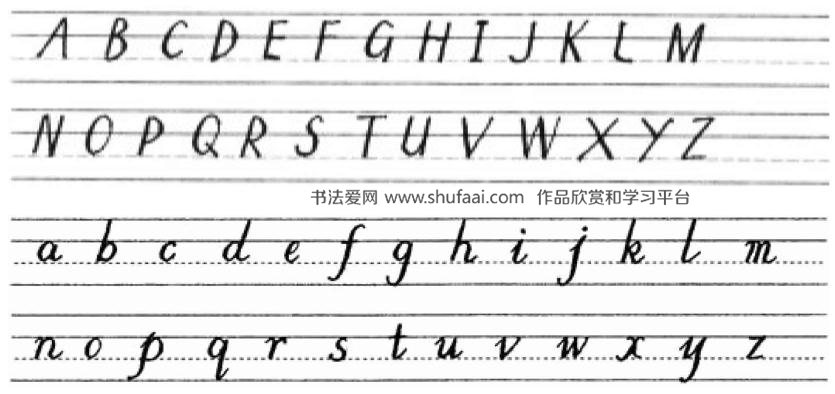 A B C D E F G H I J K L M
N O P Q R S T U V W X Y Z
书法爱网 www.shufaai.com 作品欣赏和学习平台
a b c d e f g h i j k l m
n o p q r s t u v w x y z